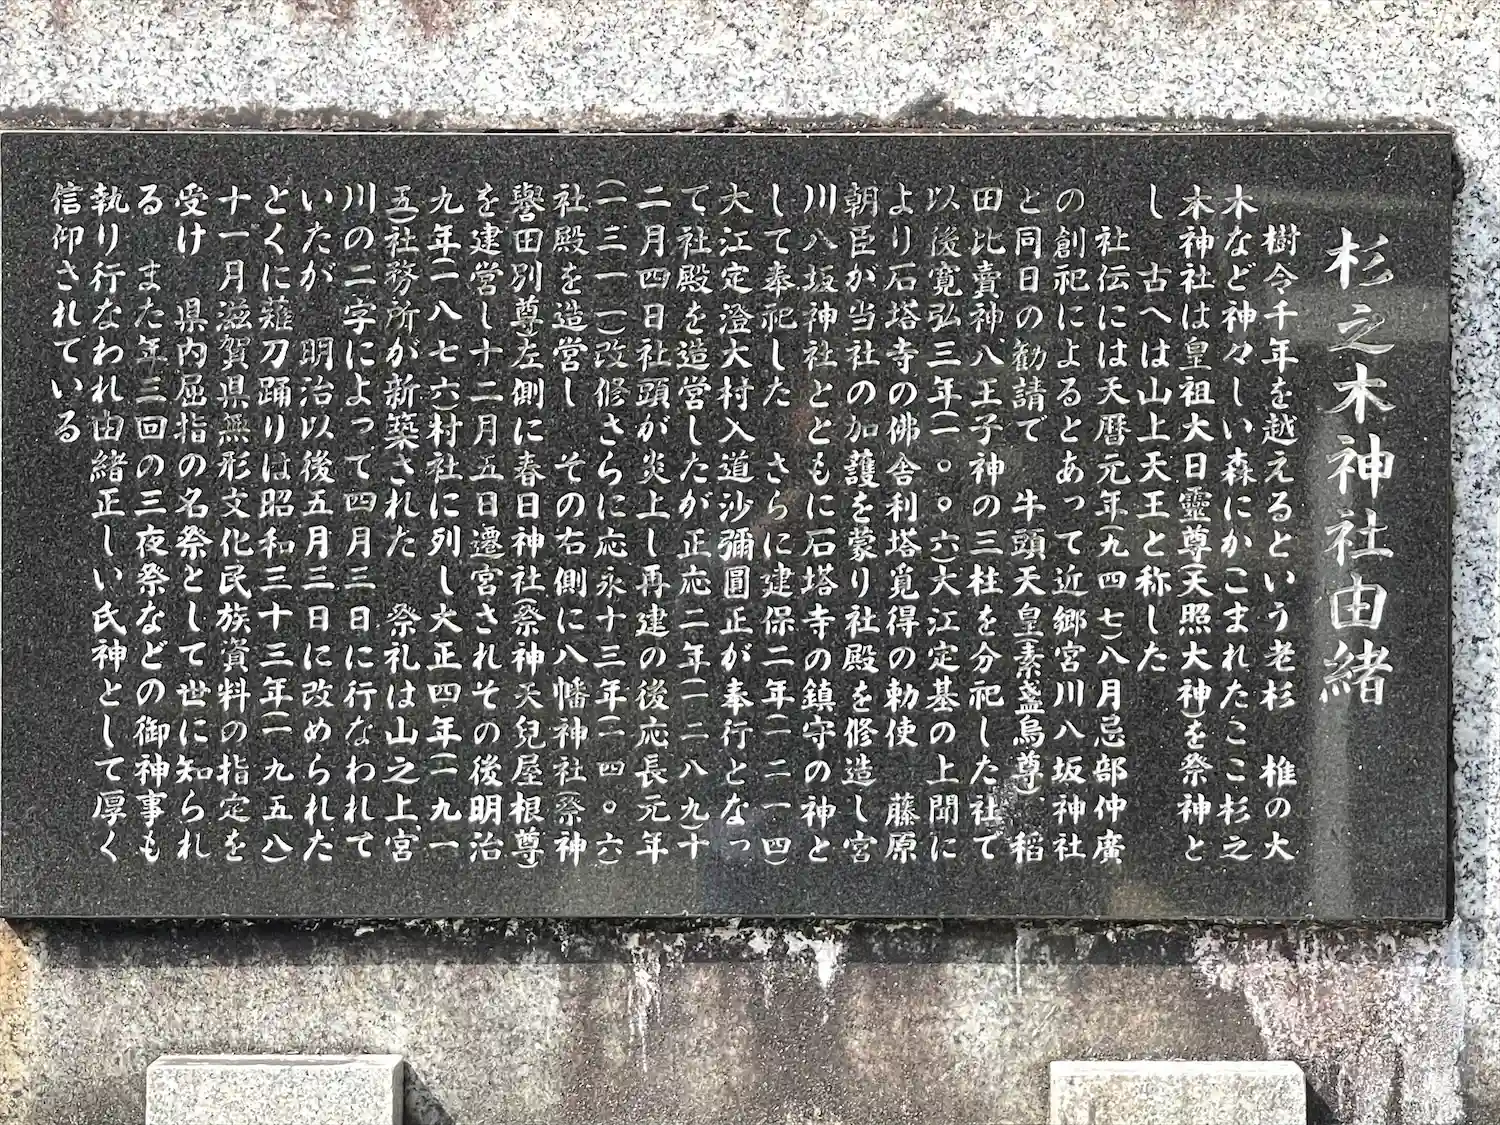 杉之木神社由緒
樹令千年を越えるという老杉　椎の大
木など神々しい森にかこまれたここ杉之
木神社は皇祖大日靈尊(天照大神)を祭神と
し　古へは山上天王と称した
社伝には天暦元年(九四七)八月忌部仲廣
の創祀によるとあって近郷宮川八坂神社
と同日の勧請で　牛頭天皇(素盞烏尊)、稲
田比賣神、八王子神の三柱を分祀した社で
以後寛弘三年(一〇〇六)大江定基の上聞に
より石塔寺の佛舎利塔覓得の勅使　藤原
朝臣が当社の加護を蒙り社殿を修造し宮
川八坂神社とともに石塔寺の鎮守の神と
して奉祀した　さらに建保二年(一二一四)
大江定澄大村入道沙彌圓正が奉行となっ
て社殿を造営したが正応二年(一二八九)十
二月四日社頭が炎上し再建の後応長元年
(一三一一)改修さらに応永十三年(一四〇六)
社殿を造営し　その右側に八幡神社(祭神
譽田別尊左側に春日神社(祭神天兒屋根尊)
を建営し十二月五日遷宮されその後明治
九年(一八七六)村社に列し大正四年(一九一
五)社務所が新築された　祭礼は山之上、宮
川の二字によって四月三日に行なわれて
いたが　明治以後五月三日に改められた
とくに薙刀踊りは昭和三十三年(一九五八)
十一月滋賀県無形文化民族資料の指定を
受け　県内屈指の名祭として世に知られ
る　また年三回の三夜祭などの御神事も
執り行なわれ由緒正しい氏神として厚く
信仰されている